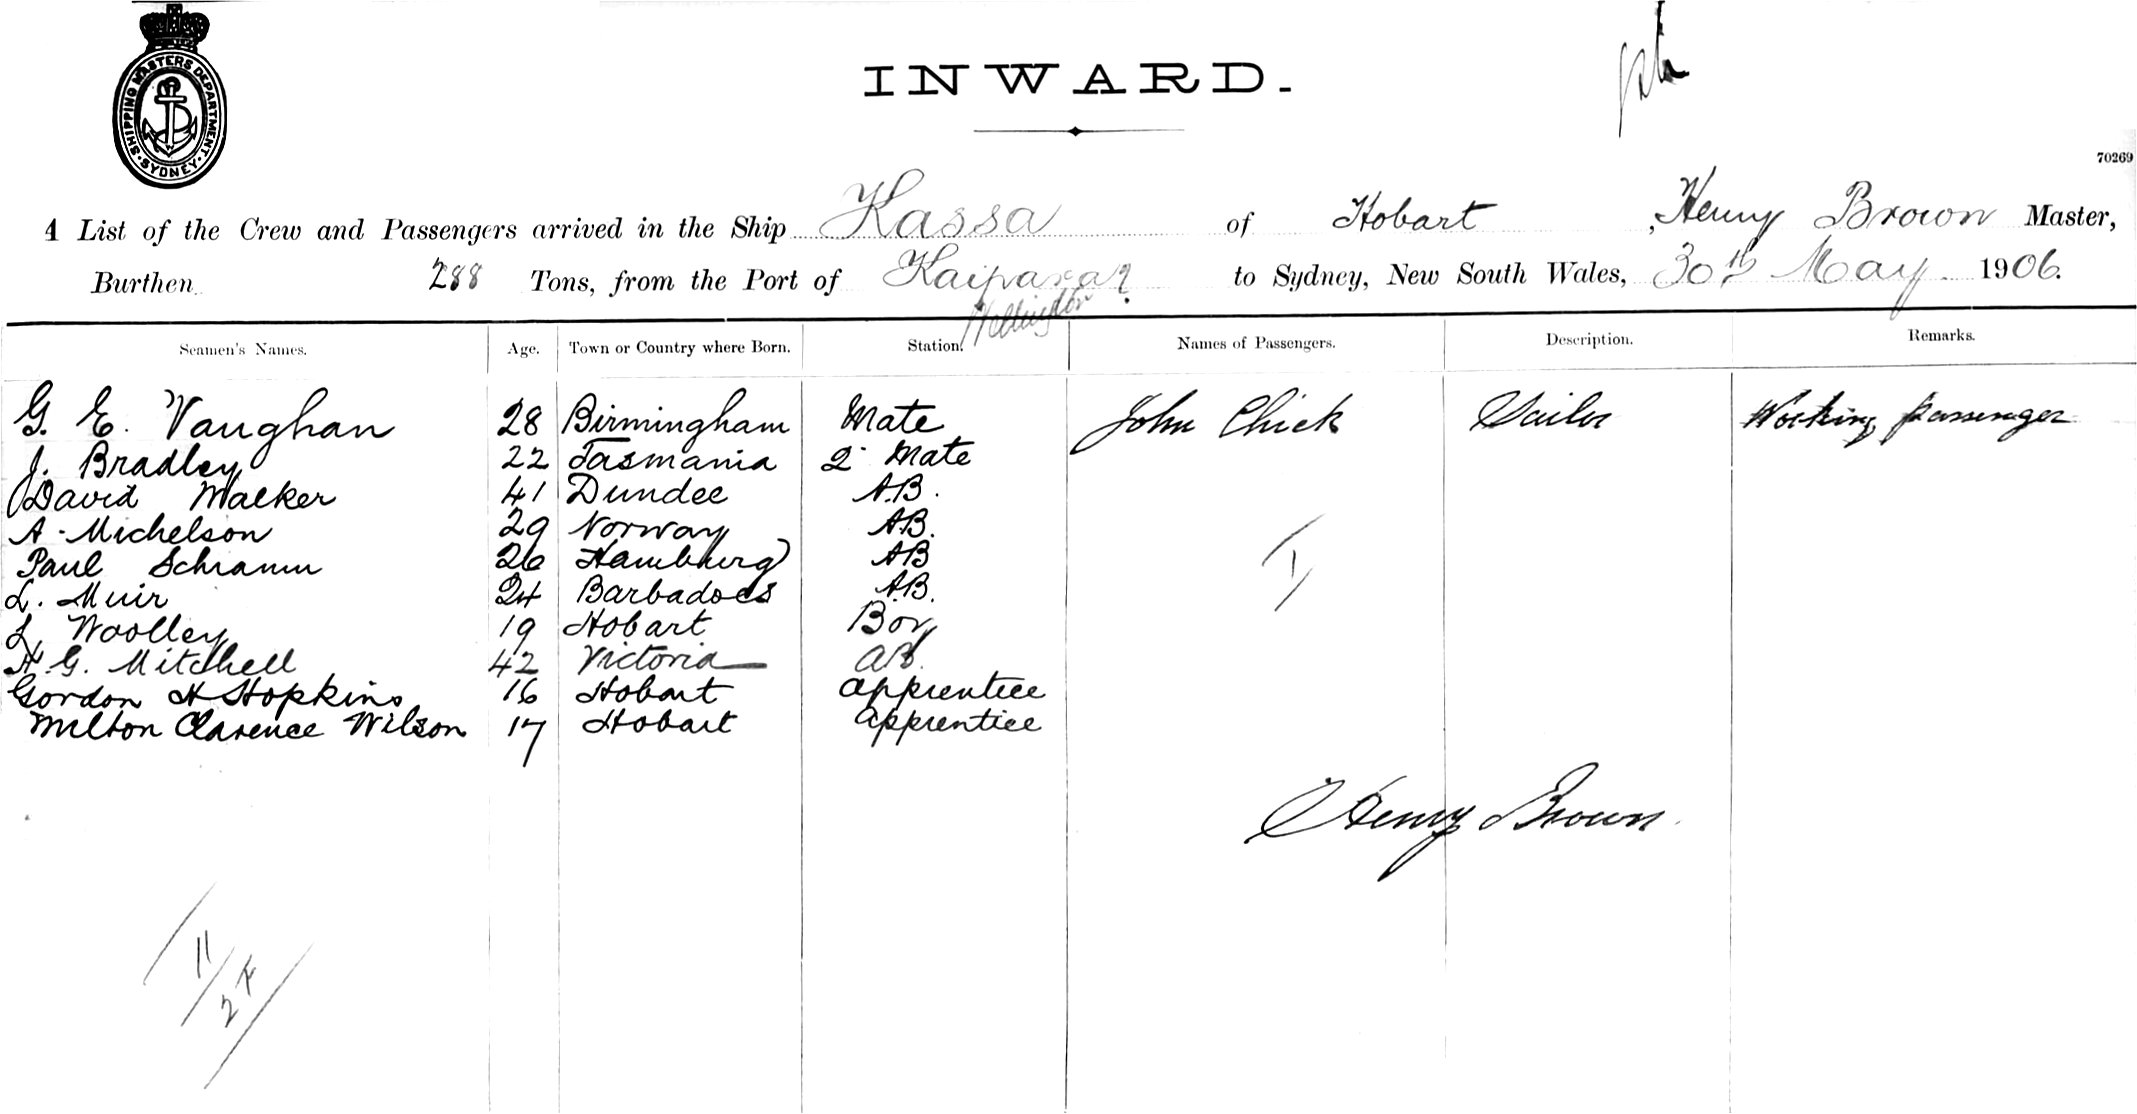 SHIPPING MASTERS DEPARTMENT · SYDNEY ·
INWARD.
70269
A List of the Crew and Passengers arrived in the Ship Kassa of Hobart, Henry Brown Master,
Burthen 288 Tons, from the Port of Kaipara? to Sydney, New South Wales, 30th May 1906.
Wellington
Seamen's Names. Age. Town or Country where Born. Station. Names of Passengers. Description. Remarks.
G. E. Vaughan 28 Birmingham Mate John Chick Sailor Working passenger
J. Bradley 22 Tasmania 2 Mate
David Walker 41 Dundee A.B.
A. Michelson 29 Norway A.B.
Paul Schramm 26 Hamburg AB
L. Muir 24 Barbadoes A.B.
L. Woolley 19 Hobart Boy
H. G. Mitchell 42 Victoria AB.
Gordon H Hopkins 16 Hobart apprentice
Milton Clarence Wilson 17 Hobart apprentice
1
Henry Brown.
11
2 F